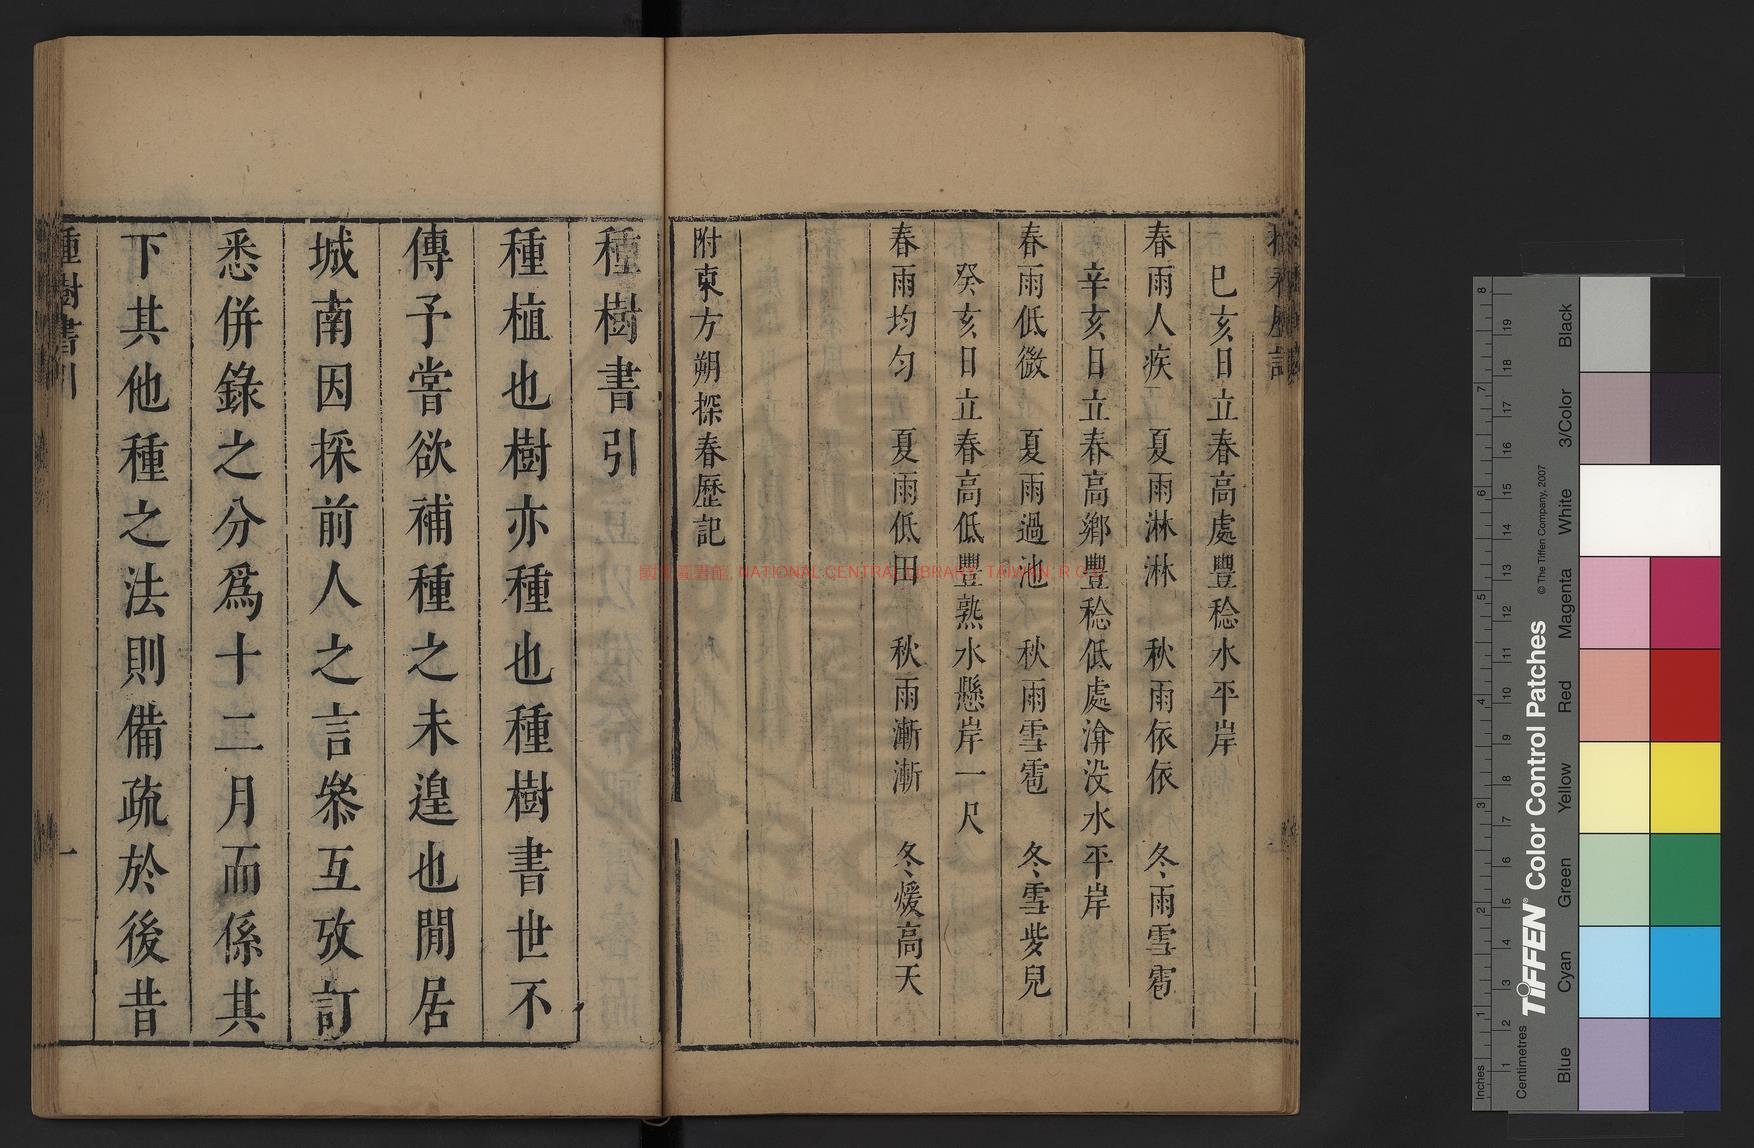 巳亥日立春高處豐稔水平岸
春雨人疾 夏雨淋淋 秋雨依依 冬雨雪雹
辛亥日立春高鄉豐稔低處渰没水平岸
春雨低微 夏雨過池 秋雨雪雹 冬雪
癸亥日立春高低豐熟水懸岸一尺
春雨均匀 夏雨低田 秋雨漸漸 冬煖高天
附東方朔探春歷記
種樹書引
種植也樹亦種也種樹書世不
傳予嘗欲補種之未遑也閒居
城南因採前人之言叅互攷訂
悉併錄之分爲十二月而係其
下其他種之法則備疏於後昔
種樹書引
一
NATIONAL CENTRAL LIBRARY, TAIWAN, R.O.C
TIFFEN® Color Control Patches
© The Tiffen Company, 2007
Inches
Centimetres
Blue Cyan Green Yellow Red Magenta White 3/Color Black